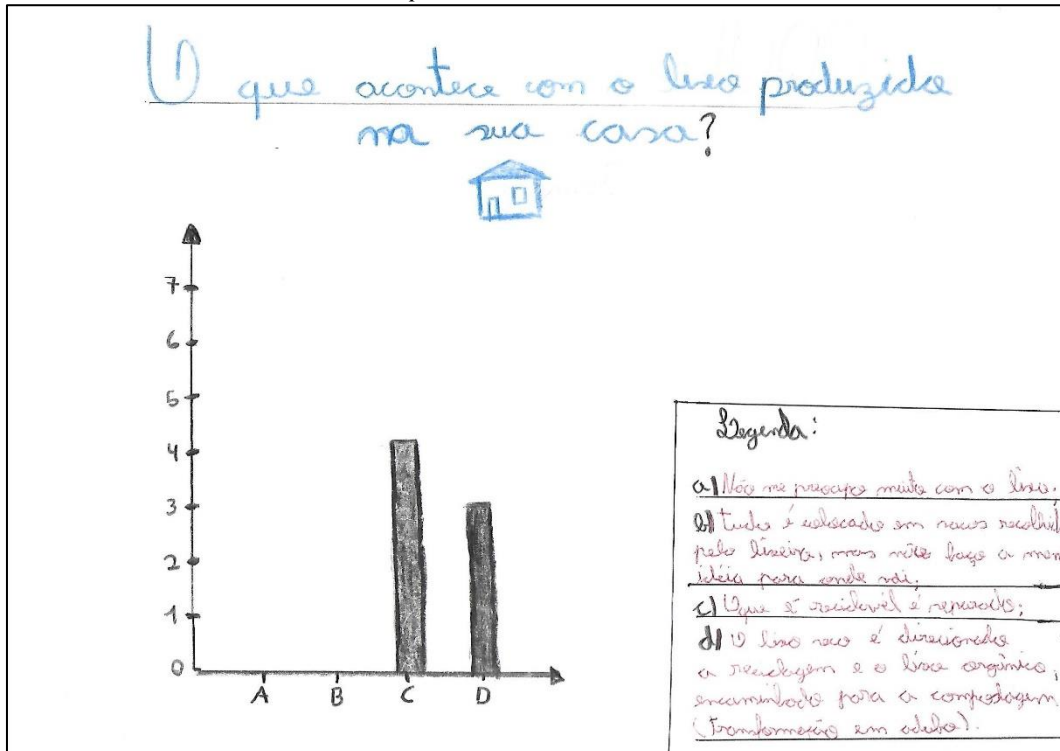 O que acontece com o lixo produzido
na sua casa?
7
6
5
4
3
2
1
0
A B C D
Legenda:
a) Não me preocupo muito com o lixo.
b) tudo é colocado em sacos recolhid
pelo lixeiro, mas não faço a men
idéia para onde vai;
c) O que é reciclável é separado;
d) O lixo seco é direcionado
a reciclagem e o lixo orgânico,
encaminhado para a compostagem
(Transformação em adubo).